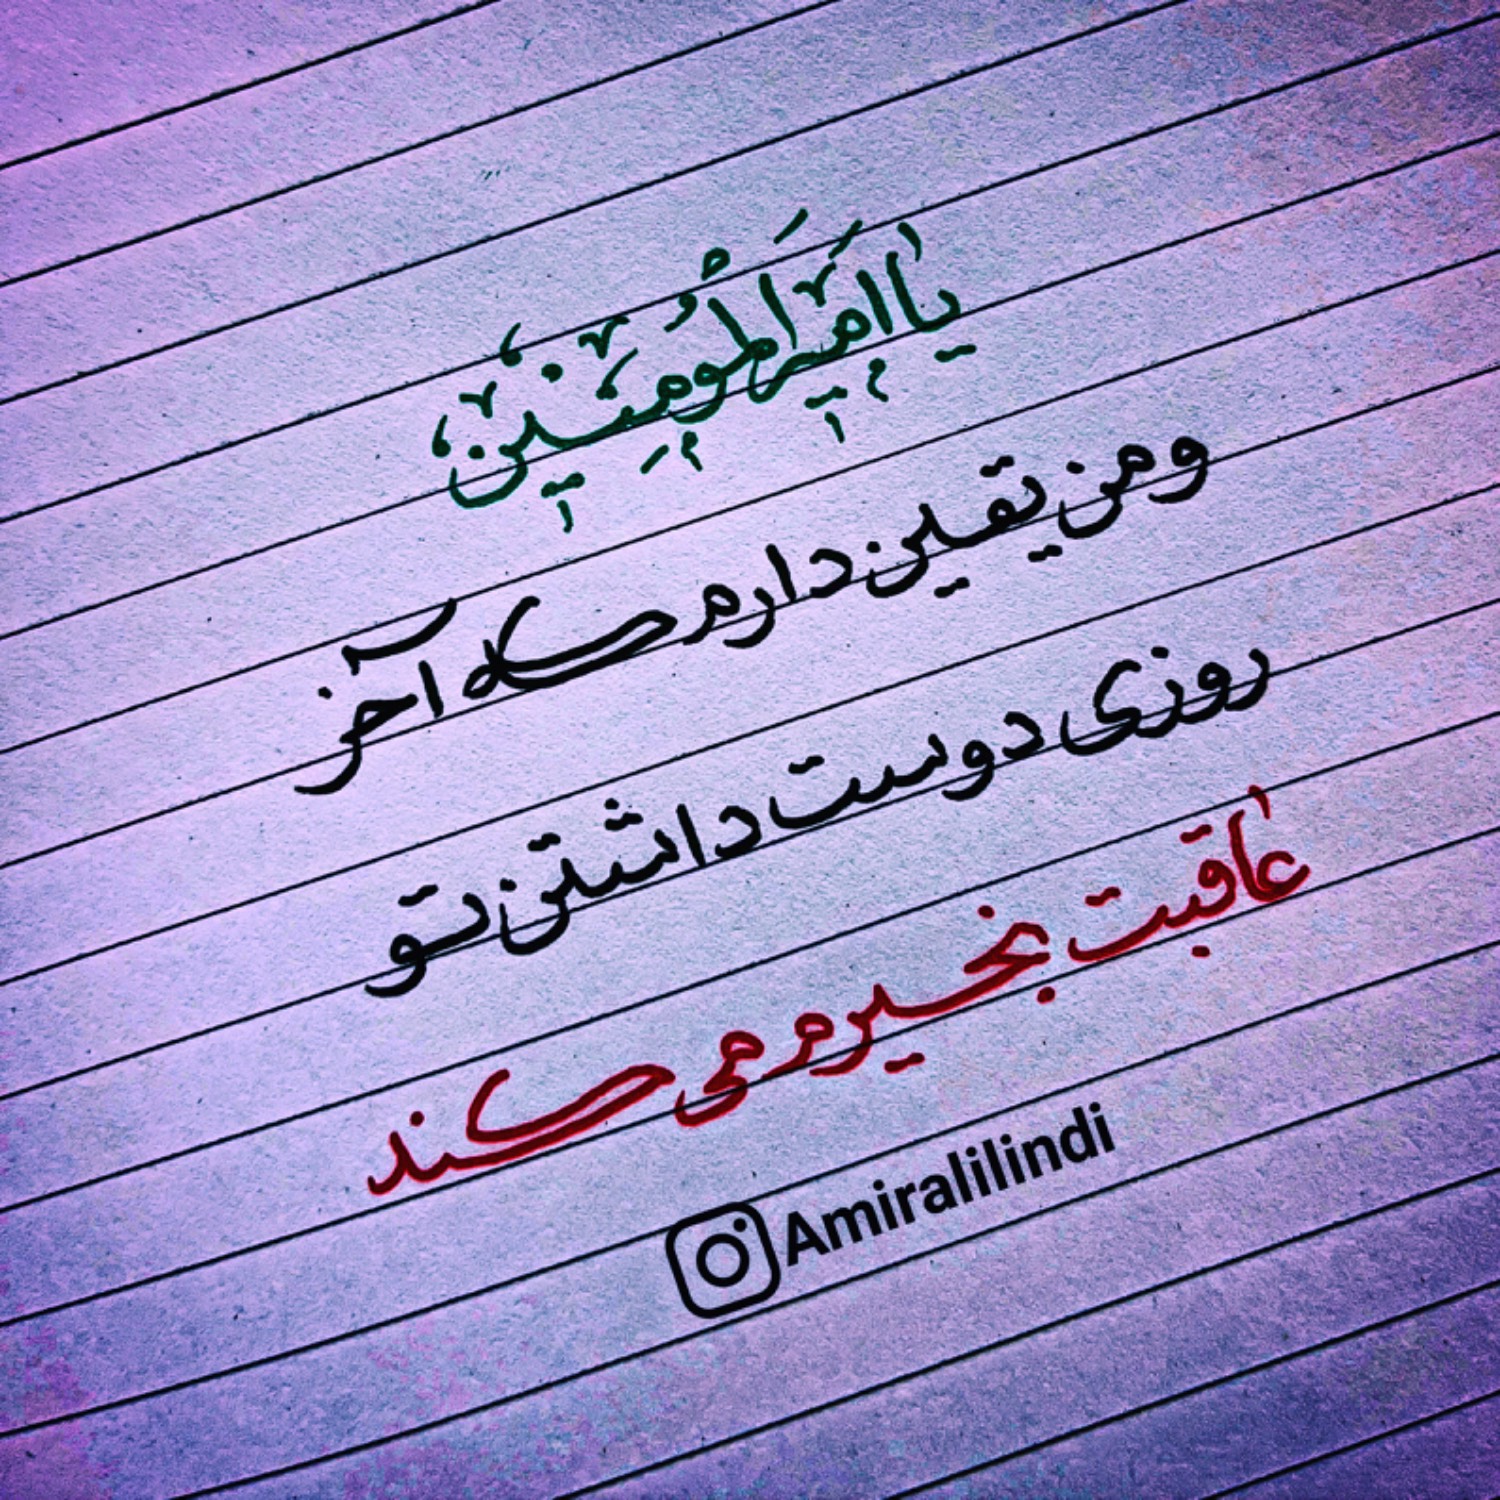 یا اَمیرَالْمُومِنین
و من یقین دارم که آخر
روزی دوست داشتن تو
عاقبت بخیرم می کند
Amiralilindi